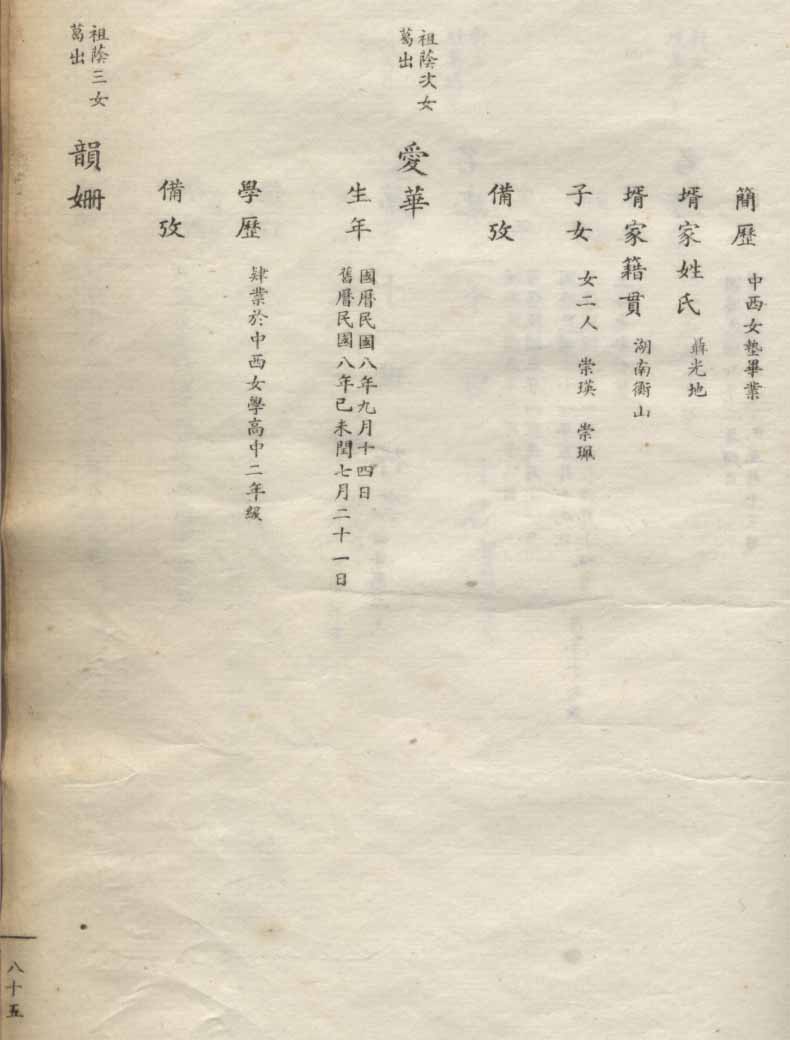 簡歷 中西女塾畢業
壻家姓氏 聶光地
壻家籍貫 湖南衡山
子女 女二人 崇瑛 崇珮
備攷
祖蔭次女
葛出
愛華
生年 國曆民國八年九月十四日
舊曆民國八年己未閏七月二十一日
學歷 肄業於中西女學高中二年級
備攷
祖蔭三女
葛出
韻姍
八十五